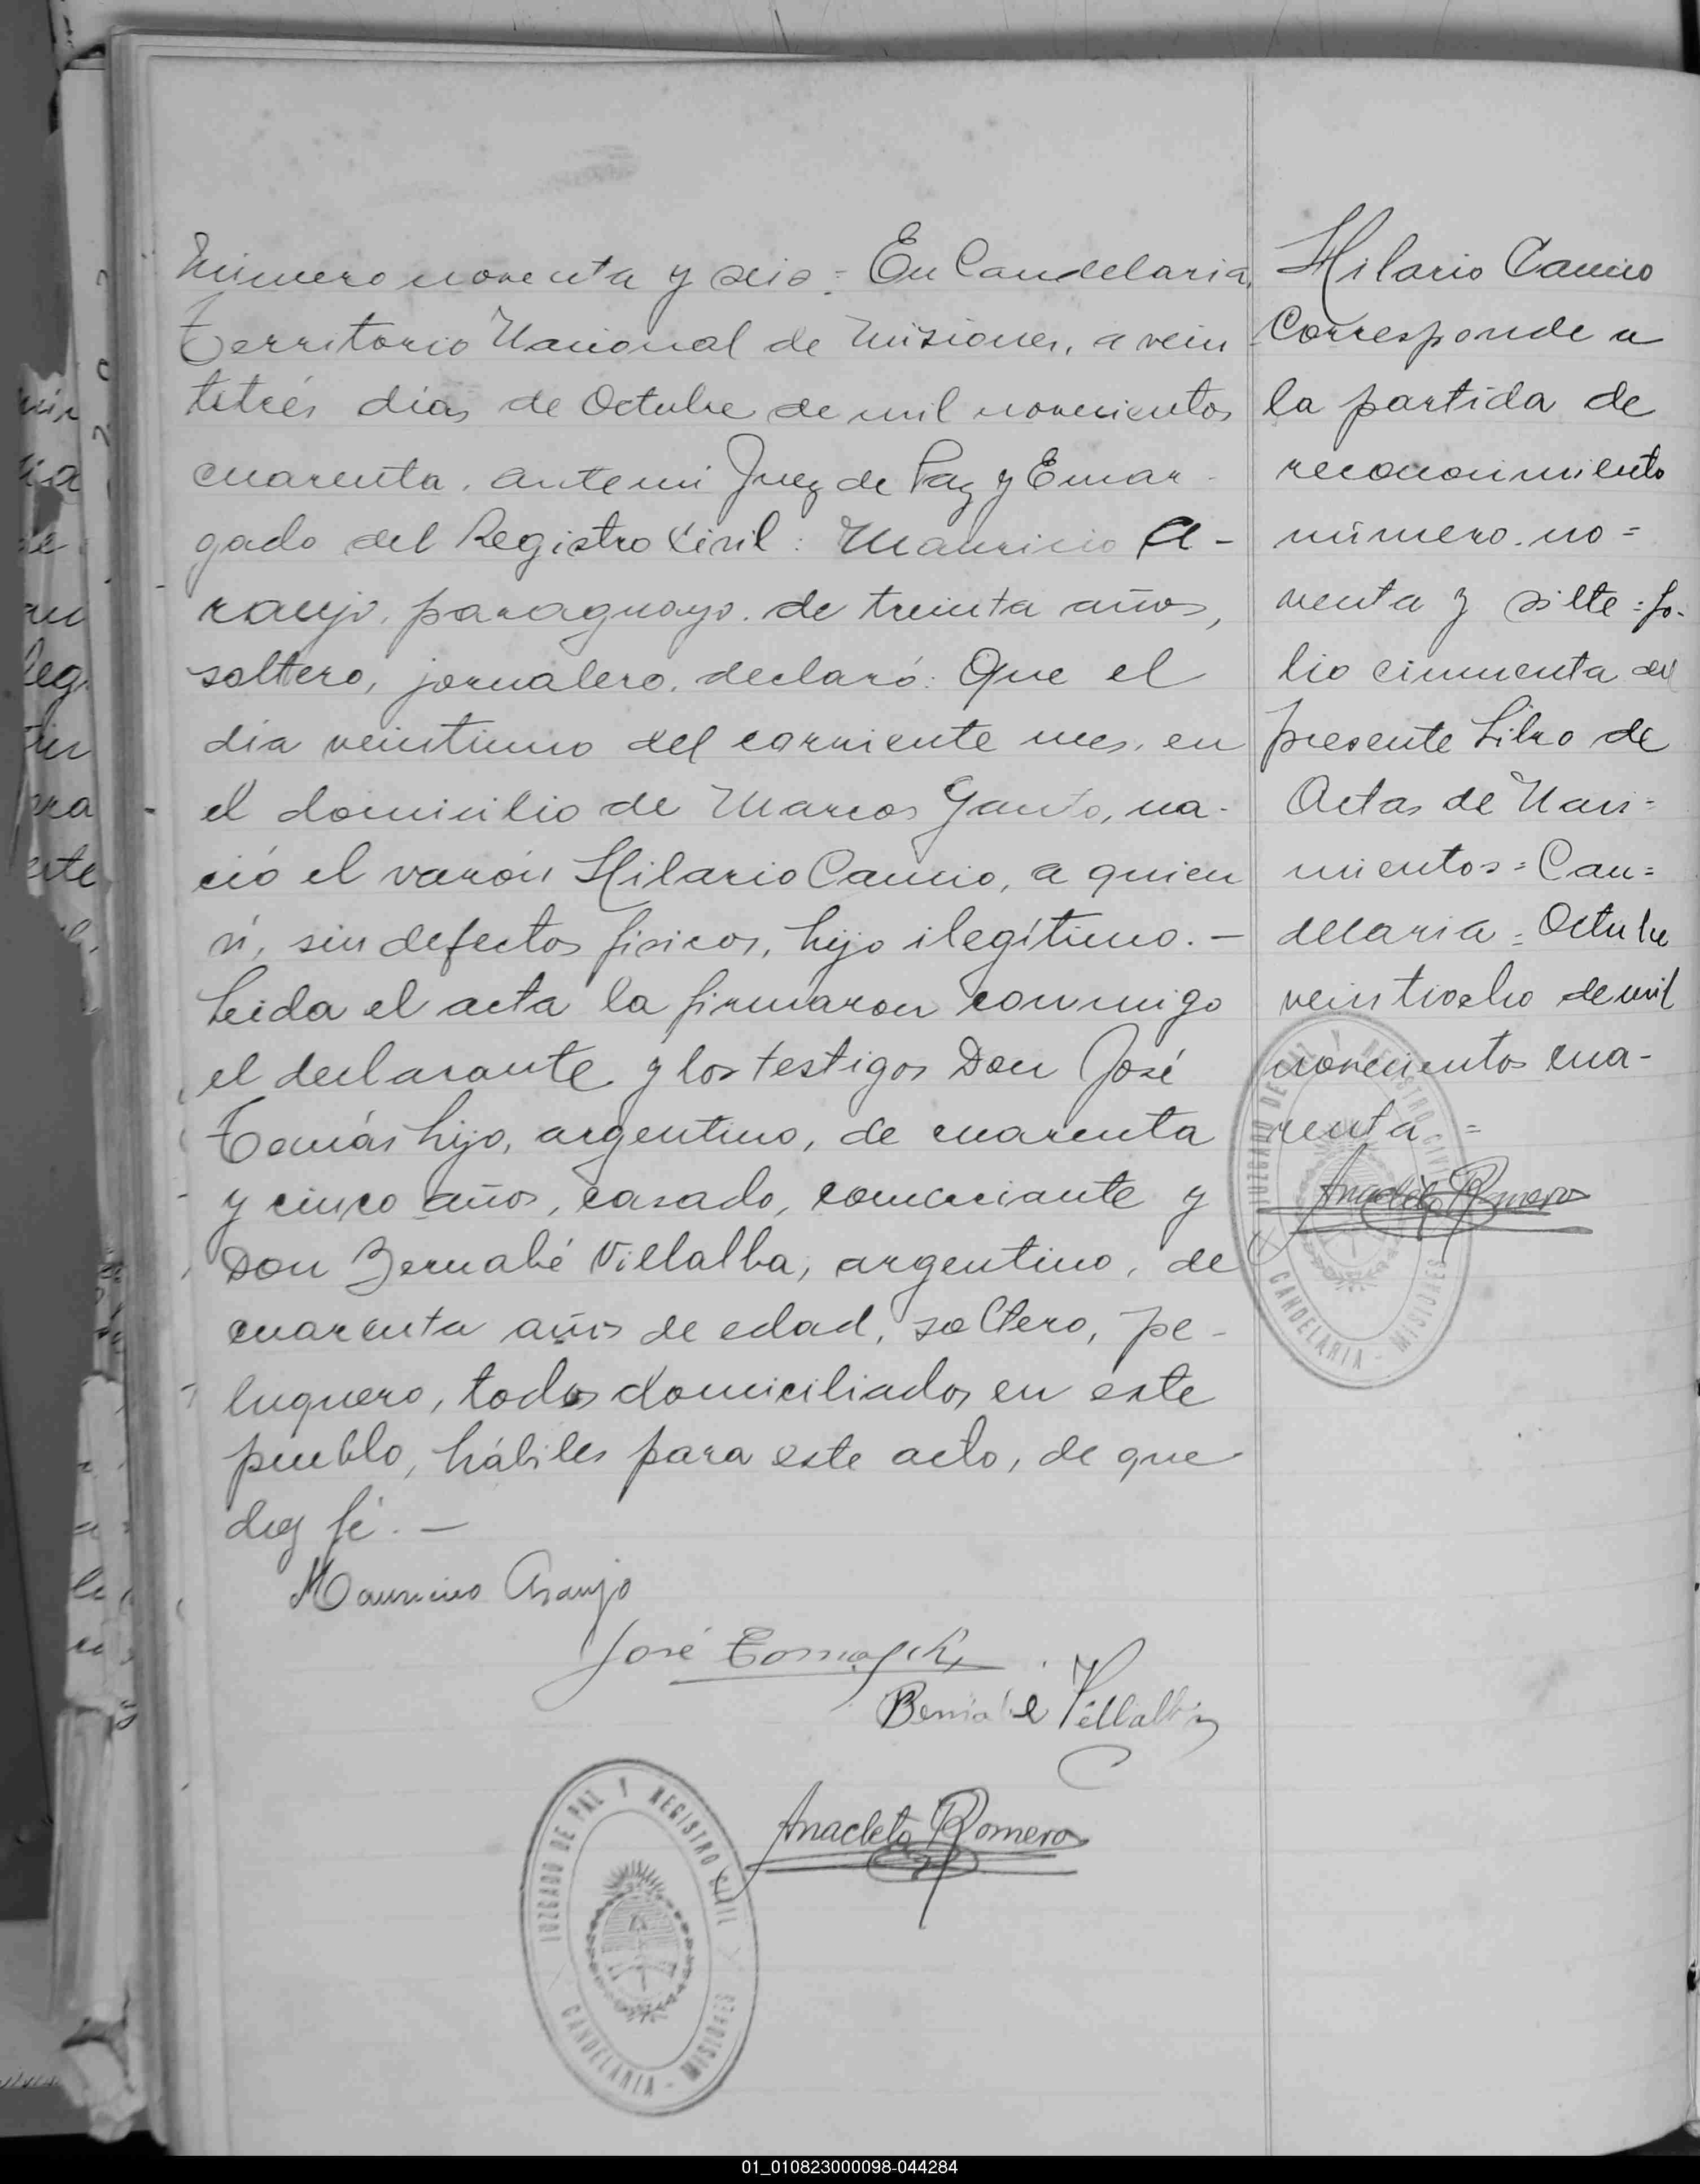 Número noventa y seis = En Candelaria,
Territorio Nacional de Misiones, a vein
titrés días de Octubre de mil novecientos
cuarenta, ante mi Juez de Paz y Encar-
gado del Registro Civil: Mauricio A-
raujo, paraguayo, de treinta años,
soltero, jornalero, declaró: Que el
día veintiuno del corriente mes, en
el domicilio de Marcos Gauto, na-
ció el varón Hilario Cancio, a quien
ví, sin defectos físicos, hijo ilegítimo. —
Leida el acta la firmaron conmigo
el declarante y los testigos Don José
Tomás hijo, argentino, de cuarenta
y cinco años, casado, comerciante y
Don Bernabé Villalba, argentino, de
cuarenta años de edad, soltero, pe-
luquero, todos domiciliados en este
pueblo, hábiles para este acto, de que
doy fé. —
Mauricio Araujo
José Tomás
Bernabé Villalba
Anacleto Romero
JUZGADO DE PAZ Y REGISTRO CIVIL
CANDELARIA - MISIONES
Hilario Cancio
Corresponde a
la partida de
reconocimiento
número no=
venta y siete = fo-
lio cincuenta del
presente Libro de
Actas de Naci=
mientos = Can=
delaria = Octubre
veintiocho de mil
novecientos cua-
renta =
Anacleto Romero
JUZGADO DE PAZ Y REGISTRO CIVIL
CANDELARIA - MISIONES
01_010823000098-044284